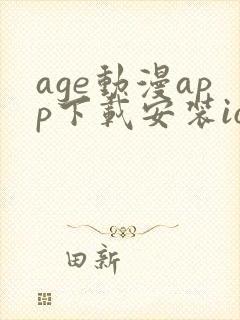 age動漫ap
p下載安裝io
田新